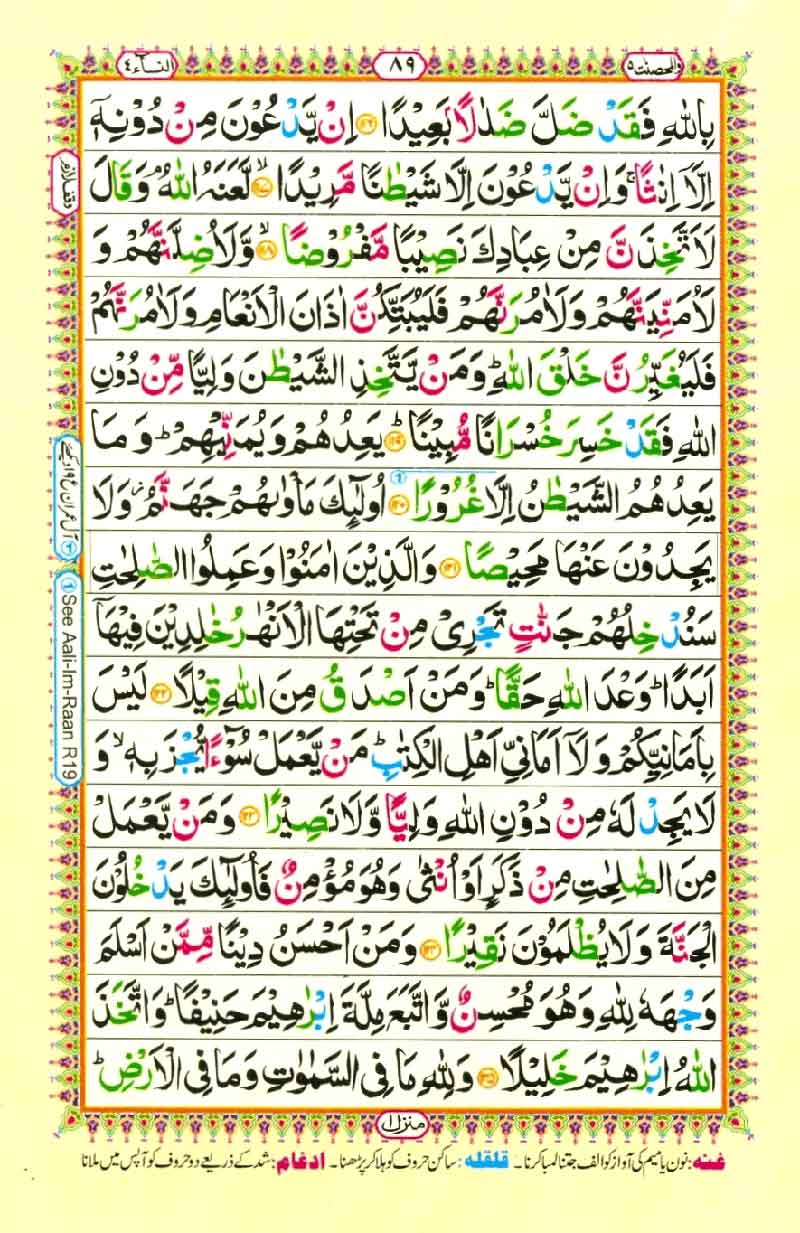 والمحصنت ٥ ٨٩ النسآء ٤
بِاللّٰهِ فَقَدْ ضَلَّ ضَلٰلًۢا بَعِیْدًا ﴿۱۱۶﴾ اِنْ یَّدْعُوْنَ مِنْ دُوْنِهٖۤ
اِلَّاۤ اِنٰثًا ۚ وَ اِنْ یَّدْعُوْنَ اِلَّا شَیْطٰنًا مَّرِیْدًا ﴿۱۱۷﴾ ۙ لَّعَنَهُ اللّٰهُ ۘ وَ قَالَ
لَاَتَّخِذَنَّ مِنْ عِبَادِكَ نَصِیْبًا مَّفْرُوْضًا ﴿۱۱۸﴾ ۙ وَّ لَاُضِلَّنَّهُمْ وَ
لَاُمَنِّیَنَّهُمْ وَ لَاٰمُرَنَّهُمْ فَلَیُبَتِّكُنَّ اٰذَانَ الْاَنْعَامِ وَ لَاٰمُرَنَّهُمْ
فَلَیُغَیِّرُنَّ خَلْقَ اللّٰهِ ؕ وَ مَنْ یَّتَّخِذِ الشَّیْطٰنَ وَلِیًّا مِّنْ دُوْنِ
اللّٰهِ فَقَدْ خَسِرَ خُسْرَانًا مُّبِیْنًا ﴿۱۱۹﴾ ؕ یَعِدُهُمْ وَ یُمَنِّیْهِمْ ؕ وَ مَا
یَعِدُهُمُ الشَّیْطٰنُ اِلَّا غُرُوْرًا ﴿۱۲۰﴾ اُولٰٓىِٕكَ مَاْوٰىهُمْ جَهَنَّمُ ؗ وَ لَا
یَجِدُوْنَ عَنْهَا مَحِیْصًا ﴿۱۲۱﴾ وَ الَّذِیْنَ اٰمَنُوْا وَ عَمِلُوا الصّٰلِحٰتِ
سَنُدْخِلُهُمْ جَنّٰتٍ تَجْرِیْ مِنْ تَحْتِهَا الْاَنْهٰرُ خٰلِدِیْنَ فِیْهَاۤ
اَبَدًا ؕ وَعْدَ اللّٰهِ حَقًّا ؕ وَ مَنْ اَصْدَقُ مِنَ اللّٰهِ قِیْلًا ﴿۱۲۲﴾ لَیْسَ
بِاَمَانِیِّكُمْ وَ لَاۤ اَمَانِیِّ اَهْلِ الْكِتٰبِ ؕ مَنْ یَّعْمَلْ سُوْٓءًا یُّجْزَ بِهٖ ۙ وَ
لَا یَجِدْ لَهٗ مِنْ دُوْنِ اللّٰهِ وَلِیًّا وَّ لَا نَصِیْرًا ﴿۱۲۳﴾ وَ مَنْ یَّعْمَلْ
مِنَ الصّٰلِحٰتِ مِنْ ذَكَرٍ اَوْ اُنْثٰی وَ هُوَ مُؤْمِنٌ فَاُولٰٓىِٕكَ یَدْخُلُوْنَ
الْجَنَّةَ وَ لَا یُظْلَمُوْنَ نَقِیْرًا ﴿۱۲۴﴾ وَ مَنْ اَحْسَنُ دِیْنًا مِّمَّنْ اَسْلَمَ
وَجْهَهٗ لِلّٰهِ وَ هُوَ مُحْسِنٌ وَّ اتَّبَعَ مِلَّةَ اِبْرٰهِیْمَ حَنِیْفًا ؕ وَ اتَّخَذَ
اللّٰهُ اِبْرٰهِیْمَ خَلِیْلًا ﴿۱۲۵﴾ وَ لِلّٰهِ مَا فِی السَّمٰوٰتِ وَ مَا فِی الْاَرْضِ ؕ
منزل ۱
غنہ: نون یا میم کی آواز کو الف جتنا لمبا کرنا۔ قلقلہ: ساکن حروف کو ہلا کر پڑھنا۔ ادغام: شد کے ذریعے دو حروف کو آپس میں ملانا
وقف لازم
See Aali-Im-Raan R19